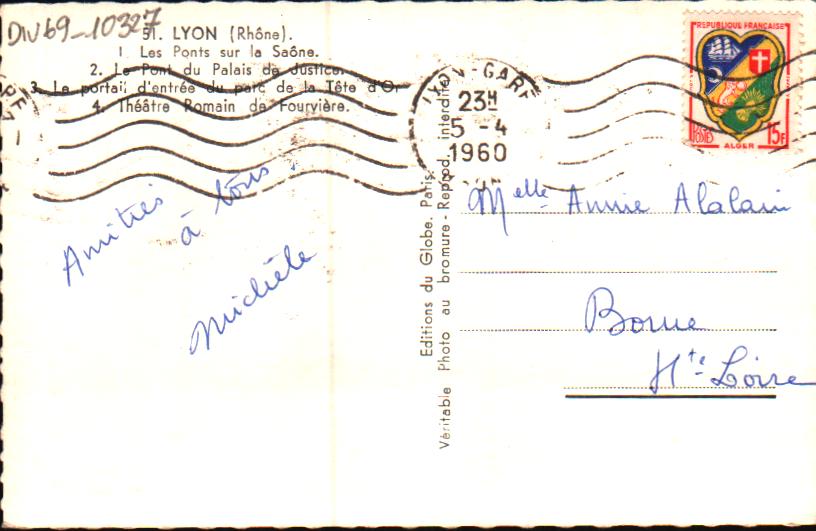 DIV69-10327
51. LYON (Rhône).
1. Les Ponts sur la Saône.
2. Le Pont du Palais de Justice.
3. Le portail d'entrée du parc de la Tête d'Or
4. Théâtre Romain de Fourvière.
LYON-GARE
23H
5-4
1960
REPUBLIQUE FRANÇAISE
POSTES
15F
ALGER
Amitiés
à tous.
Michèle
Editions du Globe. Paris.
Véritable Photo au bromure - Reprod. interdite
Melle Annie
Borne
Hte Loire